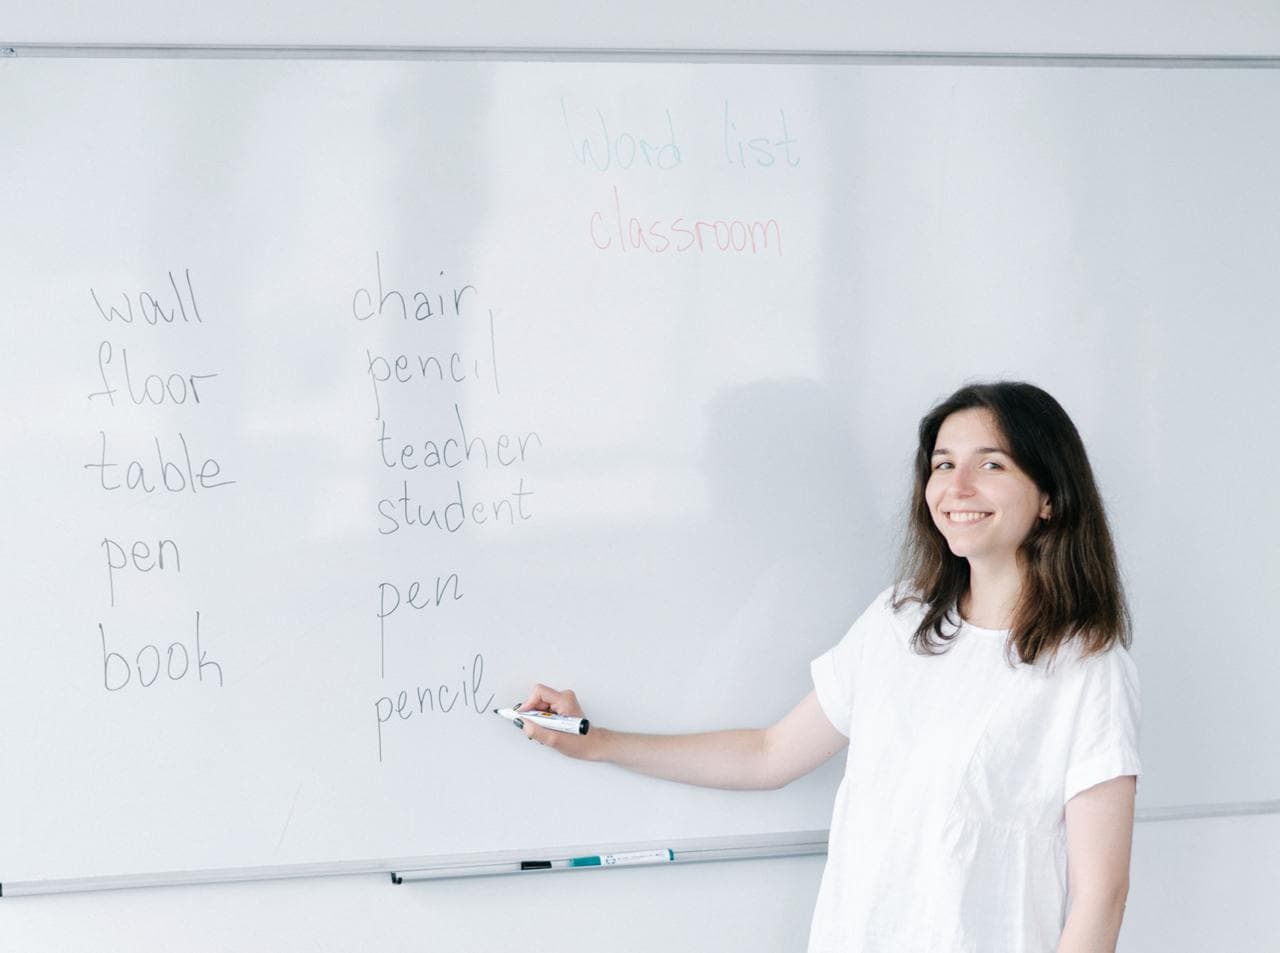 Word list
classroom
wall
floor
table
pen
book
chair
pencil
teacher
student
pen
pencil